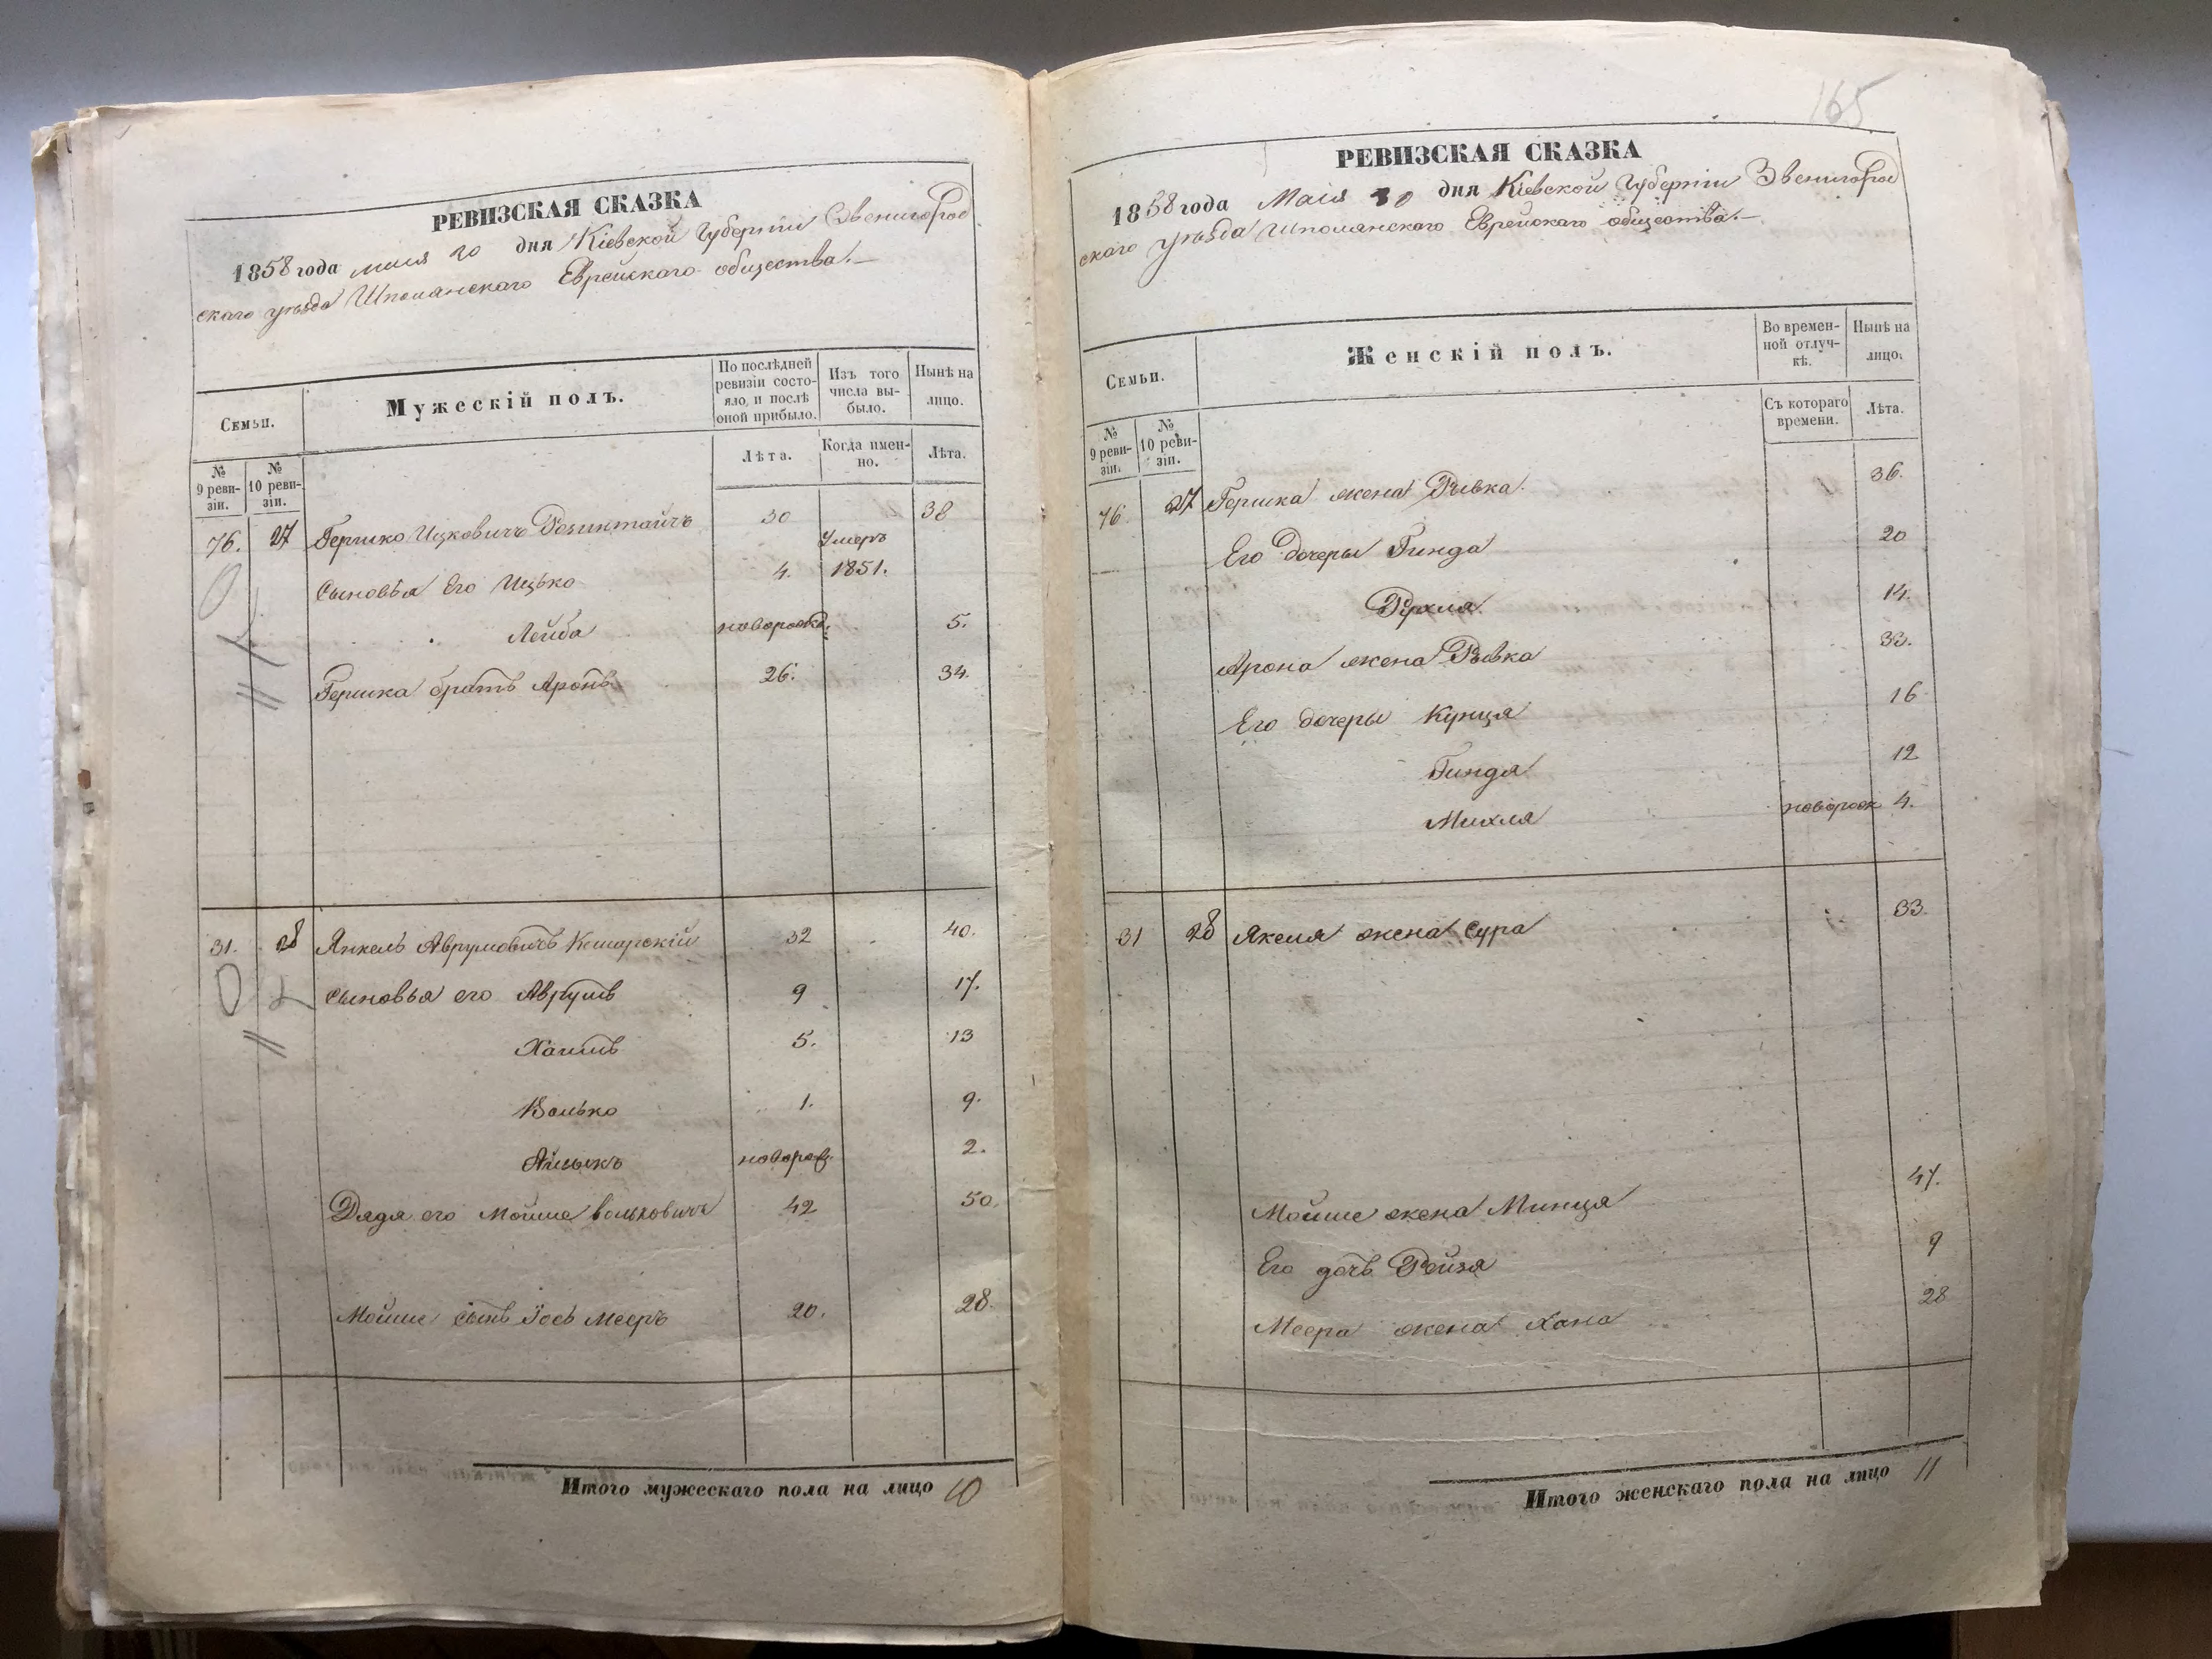 РЕВИЗСКАЯ СКАЗКА
1858 года маія 20 дня Кіевской Губерніи Звенигород
скаго уѣзда Шполянскаго Еврейскаго общества.—
Семьи.
Мужескій полъ.
По послѣдней
ревизіи состо-
яло, и послѣ
оной прибыло.
Изъ того
числа вы-
было.
Нынѣ на
лицо.
Лѣта.
Когда имен-
но.
Лѣта.
№
9 реви-
зіи.
№
10 реви-
зіи.
76. 27 Гершко Ицковичъ 30 38
Сыновья Его Ицько 4. Умеръ 1851.
Лейба новорожд. 5.
Гершка братъ Аронъ 26. 34.
31. 28 Янкель Аврумовичъ 32 40.
Сыновья его Аврумъ 9 17.
Хаимъ 5. 13
Волько 1. 9.
новорож. 2.
Дядя его Мойше Вольковичъ 42 50.
Мойше сынъ Іось Мееръ 20. 28.
Итого мужескаго пола на лицо 10
165
РЕВИЗСКАЯ СКАЗКА
1858 года Маія дня Кіевской Губерніи Звенигород
скаго уѣзда Шполянскаго Еврейскаго общества.—
Семьи.
Женскій полъ.
Во времен-
ной отлуч-
кѣ.
Нынѣ на
лицо.
Съ котораго
времени.
Лѣта.
№
9 реви-
зіи.
№
10 реви-
зіи.
76. 27 Гершка жена Рывка 36.
Его дочеры Гинда 20
Рухля 14.
Арона жена Рывка 33.
Его дочеры Кунця 16
Гинда 12
Михля новорож 4.
31 28 Якеля жена Сура 33.
Мойше жена Минця 47.
Его дочь Рейзя 9
Меера жена Хана 28
Итого женскаго пола на лицо 11